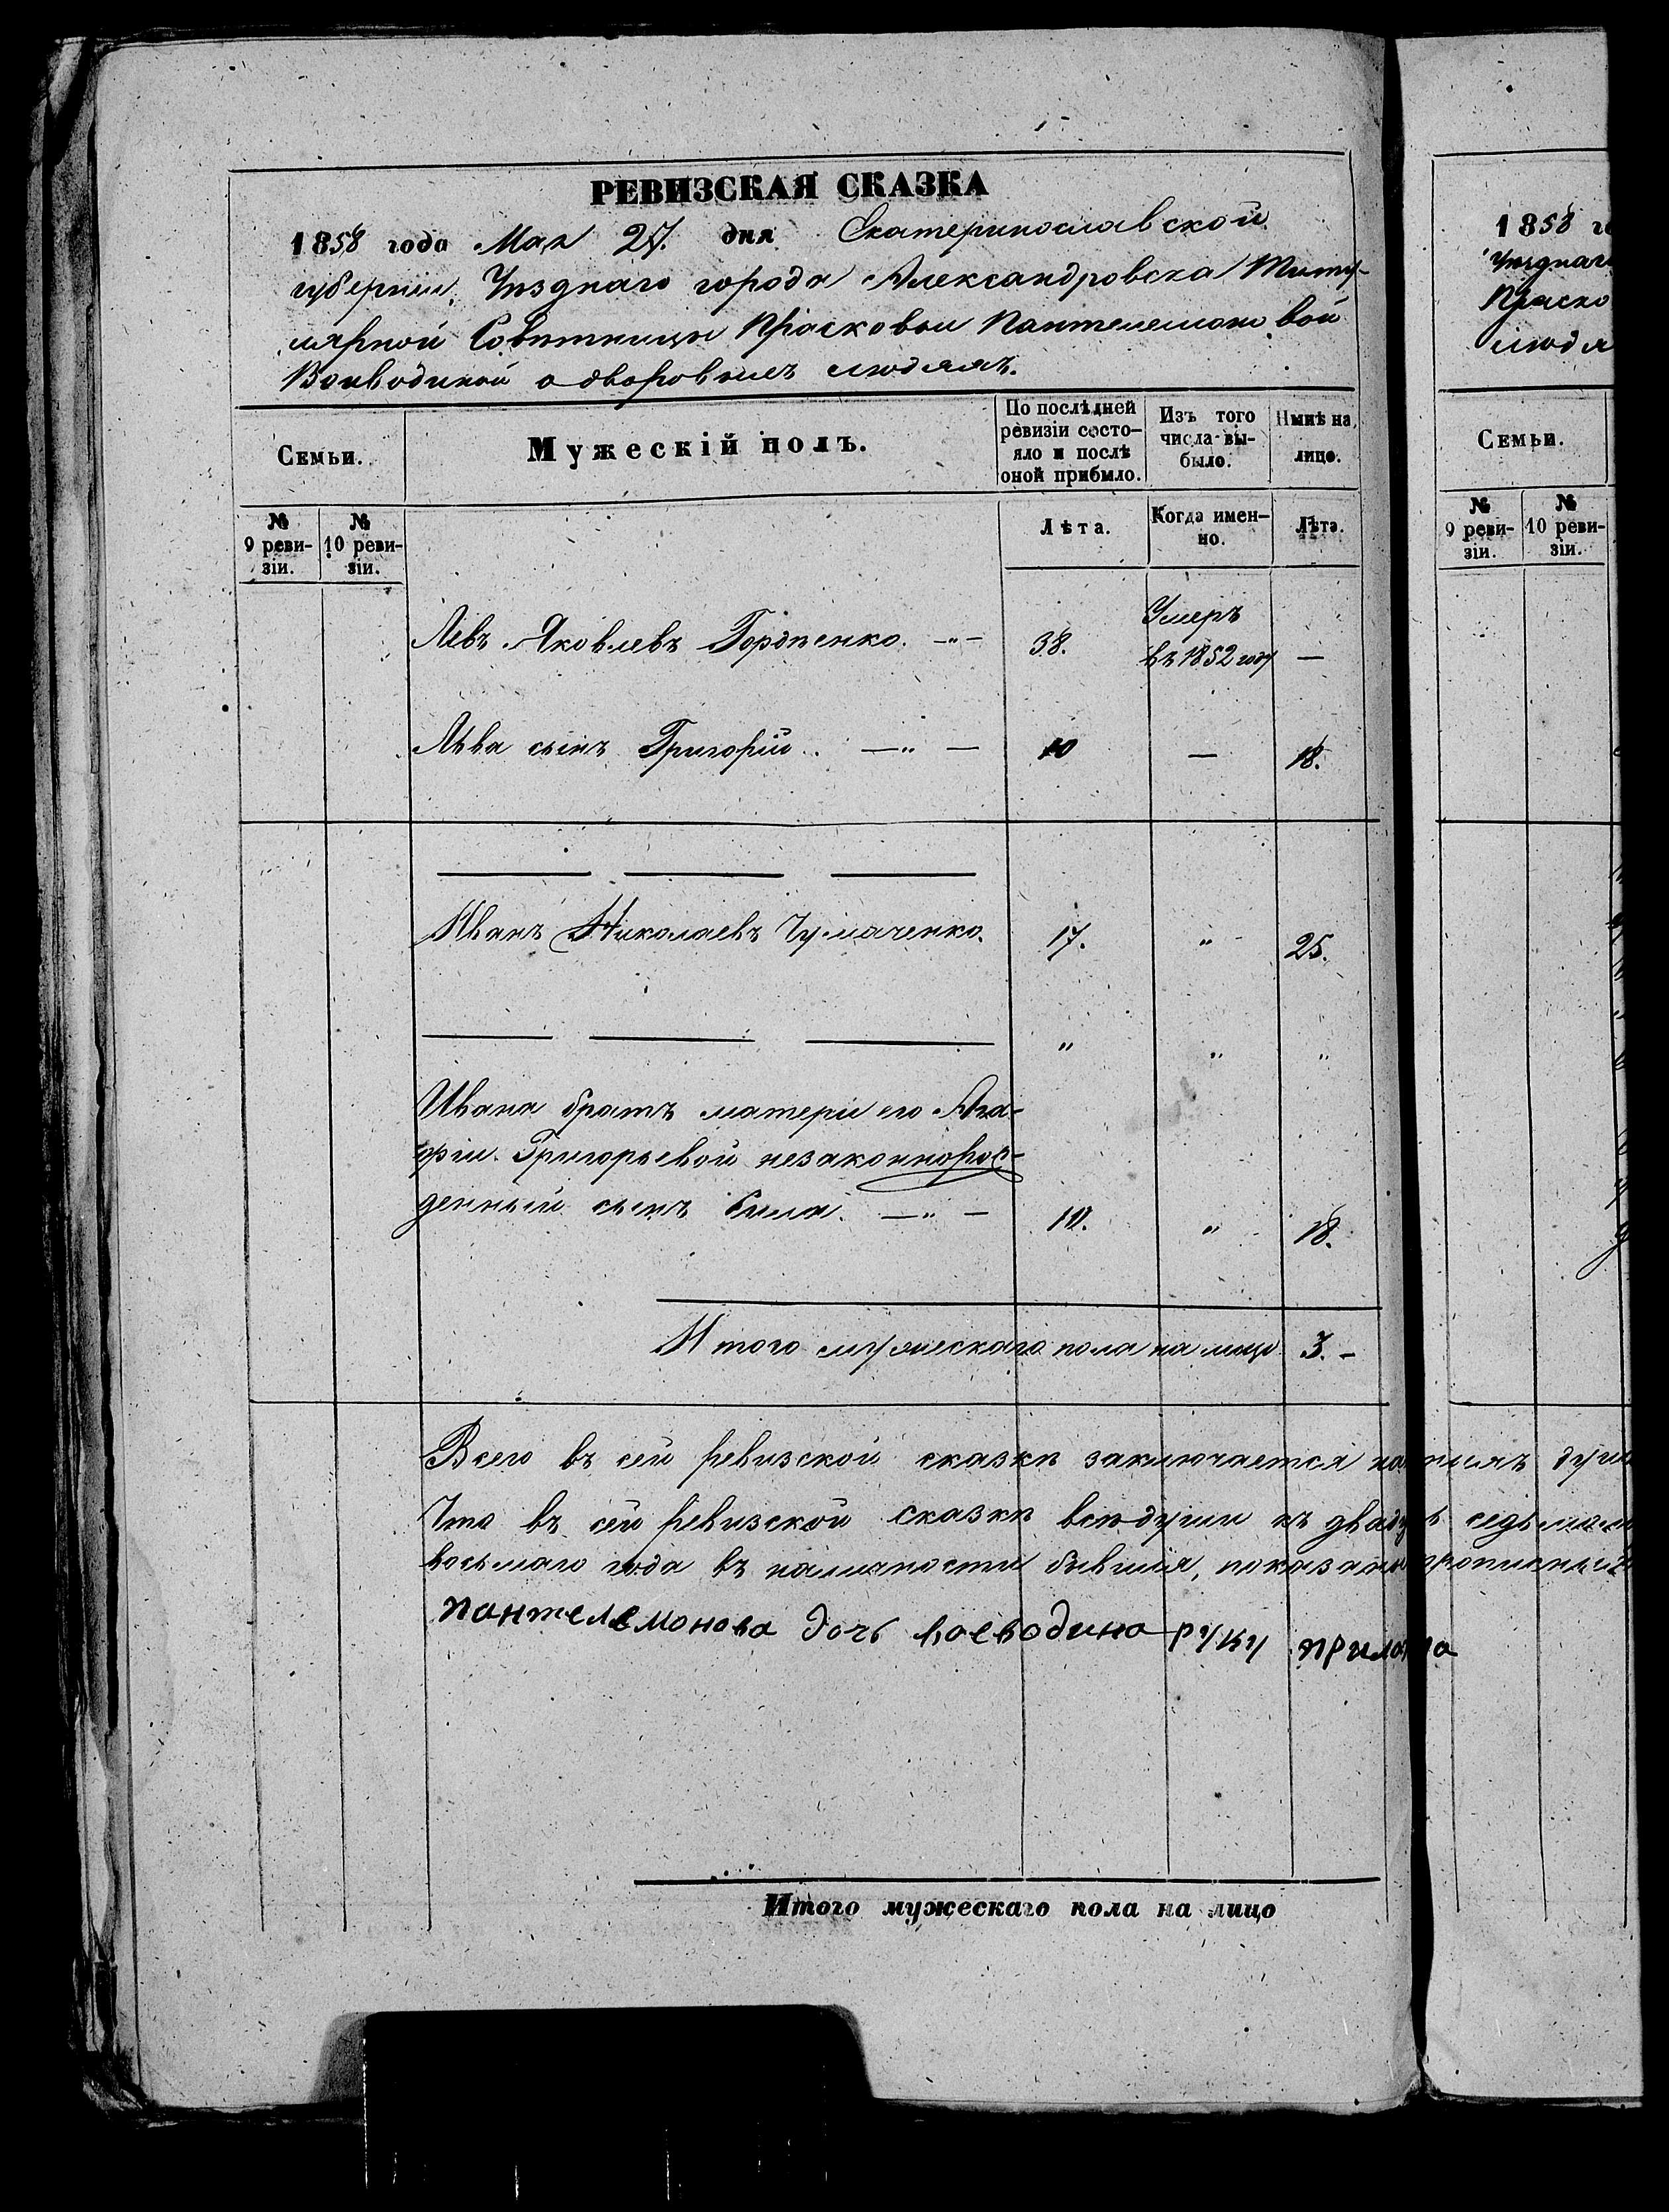 РЕВИЗСКАЯ СКАЗКА
1858 года Мая 27. дня Екатеринославской
губерніи, Уѣзднаго города Александровска Титу-
лярной Совѣтницы Прасковьи Пантелемоновой
Воиводиной о дворовыхъ людяхъ.
Семьи.
Мужескій полъ.
По послѣдней
ревизіи состо-
яло и послѣ
оной прибыло.
Изъ того
числа вы-
было.
Нынѣ на
лицо.
№
9 реви-
зіи.
№
10 реви-
зіи.
Лѣта.
Когда имен-
но.
Лѣта.
Левъ Яковлевъ Горпенко. —"— 38. Умеръ
въ 1852 году —
Льва сынъ Григорій. —"— 10 — 18.
Иванъ Николаевъ Чумаченко. 17. " 25.
" " "
Ивана братъ матери его Ага-
фіи Григорьевой незаконнорож-
денный сынъ Сила. —"— 10. " 18.
Итого мужескаго пола на лицо 3.-
Всего въ сей ревизской сказкѣ заключается
Что въ сей ревизской сказкѣ всѣ души къ
восьмаго года въ наличности бывшія, показаны
Пантелемонова дочь воеводина руку прилажа
Итого мужескаго пола на лицо
1858
Уѣзднаго
Праско
людя
Семьи.
№
9 реви-
зіи.
№
10 реви-
зіи.